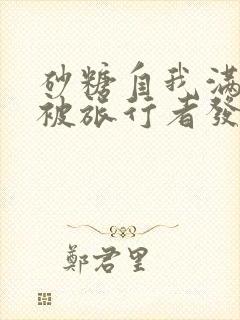 砂糖自我滿
被旅行者發
鄭君里